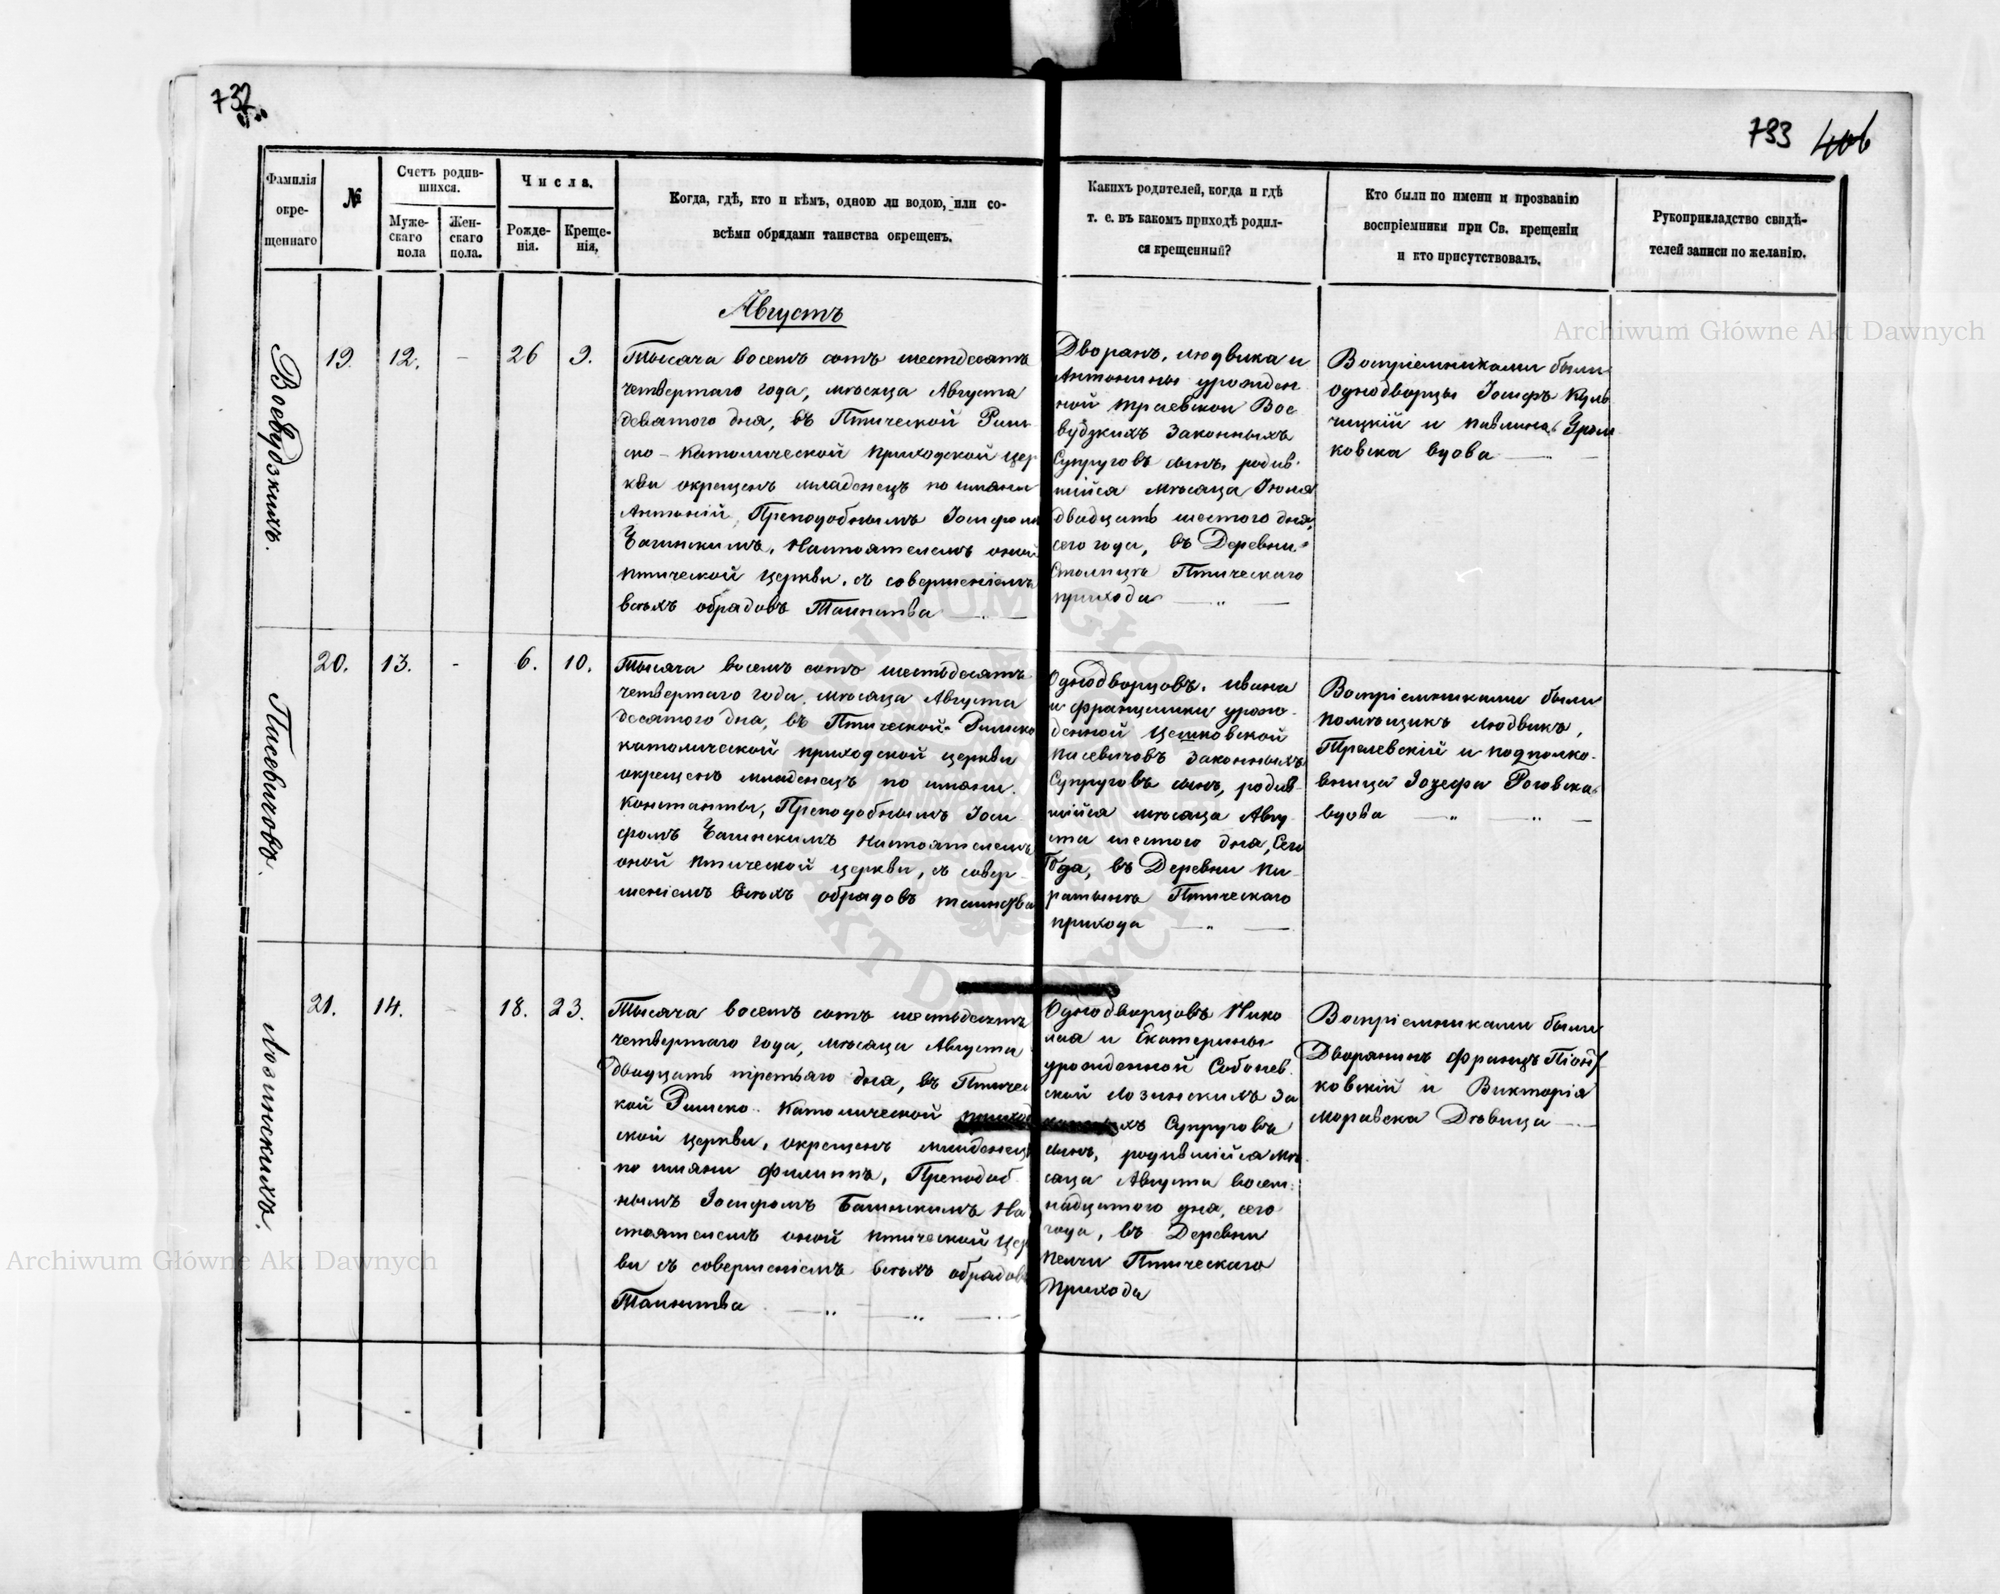 732
733 406
Фамилія окре-щеннаго
№
Счетъ родив-шихся.
Муже-скаго пола
Жен-скаго пола.
Числа.
Рожде-нія.
Креще-нія.
Когда, гдѣ, кто и кѣмъ, одною ли водою, или со-
всѣми обрядами таинства окрещенъ.
Какихъ родителей, когда и гдѣ
т. е. въ какомъ приходѣ родил-
ся крещенный?
Кто были по имени и прозванію
воспріемники при Св. крещеніи
и кто присутствовалъ.
Рукоприкладство свидѣ-
телей записи по желанію.
Августъ
Воевудзкихъ.
19. 12. – 26 9.
Тысяча восемъ сотъ шестдесятъ
четвертаго года, мѣсяца Августа
девятого дня, въ Птической Рим-
ско-Католической приходской цер
кви окрещенъ младенецъ по имяни
Антоній, Преподобнымъ Іосифомъ
Багинскимъ, Настоятелемъ оной
птической церкви, съ совершеніемъ
всѣхъ обрядовъ Таинства
Дворянъ, людвика и
Антонины урожден
ной Траевской Вое
вудзкихъ Законныхъ
Супруговъ сынъ, родив-
шійся мѣсяца Іюня
двадцать шестого дня,
сего года, въ Деревни
Столицѣ Птическаго
прихода
Воспріемниками были
однодворцы Іосифъ Куль
чицкій и Павлина
ковска вдова
Пасевичовъ.
20. 13. - 6. 10.
Тысяча восемъ сотъ шестьдесятъ
четвертаго года, мѣсяца Августа
десятого дня, въ Птической Римско
католической приходской церкви
окрещенъ младенецъ по имяни
Константы, Преподобнымъ Іоси
фомъ Багинскимъ Настоятелемъ
оной птической церкви, съ совер-
шеніемъ всѣхъ обрядовъ таинства
Однодворцовъ, ивана
и францишки урож-
денной Цешковской
пасевичовъ Законныхъ
Супруговъ сынъ, родив-
шійся мѣсяца Авгу-
ста шестого дня, Сего
Года, въ Деревни Пи
ратынѣ Птическаго
прихода
Воспріемниками были
помѣщикъ людвикъ,
Тралевскій и подполко-
вница Іозефа Роговска
вдова
Лозинскихъ.
21. 14. - 18. 23.
Тысяча восемъ сотъ шестьдесятъ
четвертаго года, мѣсяца Августа
двадцать третьяго дня, въ Птичес
кой Римско-Католической приход
ской церкви, окрещенъ младенецъ
по имяни Филиппъ, Преподоб
нымъ Іосифомъ Багинскимъ На
стоятелемъ оной птической цер
ви съ совершеніемъ всѣхъ обрядовъ
Таинства
Однодворцовъ Нико
лая и Екатерины
урожденной Собонев
ской Лозинскихъ За
конныхъ Супруговъ
сынъ, родившійся мѣ
сяца Августа восем-
надцатого дня, сего
года, въ Деревни
Пелчи Птическаго
Прихода
Воспріемниками были
Дворянинъ францъ Піонт
ковскій и Викторія
моравска Дѣвица
Archiwum Główne Akt Dawnych
Archiwum Główne Akt Dawnych